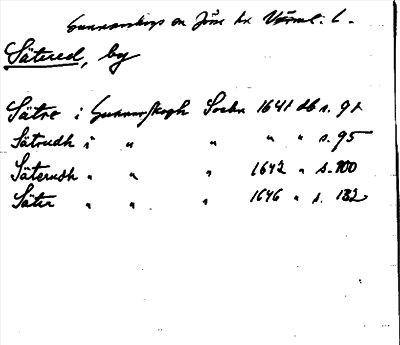 Gunnarskogs sn Jösse hd Värml. l.
Sätered, by
Sätre i Gunnarskogh Sochn 1641 db s. 91
Sätrudh i " " " " s. 95
Säterudh " " " 1642 " s. 100
Säter " " " 1646 " s. 182